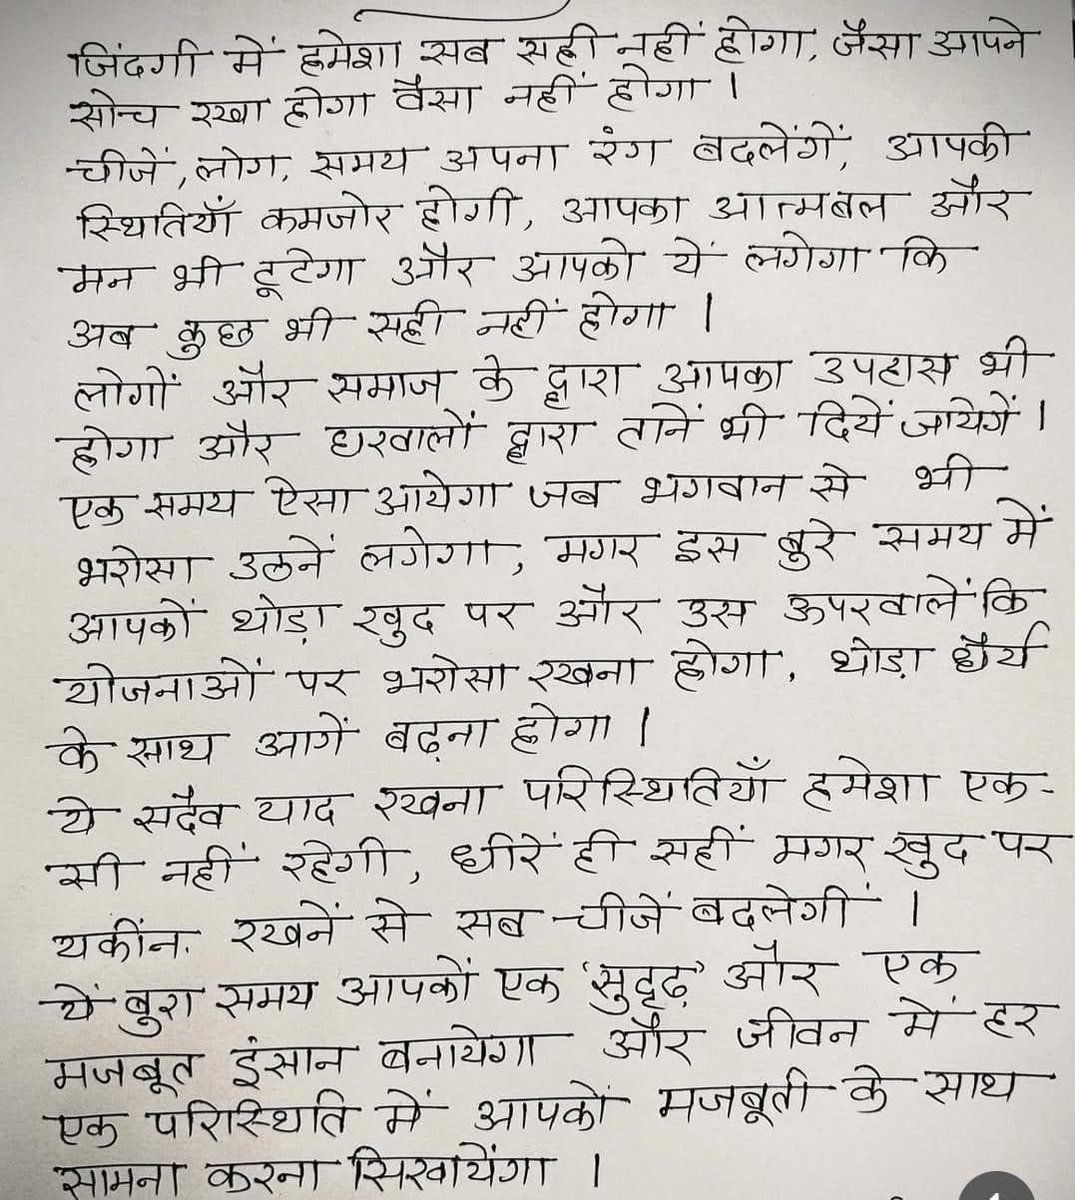 जिंदगी में हमेशा सब सही नहीं होगा, जैसा आपने
सोच रखा होगा वैसा नहीं होगा ।
चीजें, लोग, समय अपना रंग बदलेंगें, आपकी
स्थितियाँ कमजोर होगी, आपका आत्मबल और
मन भी टूटेगा और आपको ये लगेगा कि
अब कुछ भी सही नहीं होगा ।
लोगों और समाज के द्वारा आपका उपहास भी
होगा और घरवालों द्वारा तानें भी दियें जायेगें ।
एक समय ऐसा आयेगा जब भगवान से भी
भरोसा उठनें लगेगा, मगर इस बुरे समय में
आपकों थोड़ा खुद पर और उस ऊपरवालें कि
योजनाओं पर भरोसा रखना होगा, थोड़ा धैर्य
के साथ आगें बढ़ना होगा ।
ये सदैव याद रखना परिस्थितियाँ हमेशा एक-
सी नहीं रहेगी, धीरें ही सहीं मगर खुद पर
यकींन. रखनें से सब चीजें बदलेगीं ।
यें बुरा समय आपकों एक 'सुदृढ़' और एक
मजबूत इंसान बनायेगा और जीवन में हर
एक परिस्थिति में आपकों मजबूती के साथ
सामना करना सिखायेंगा ।